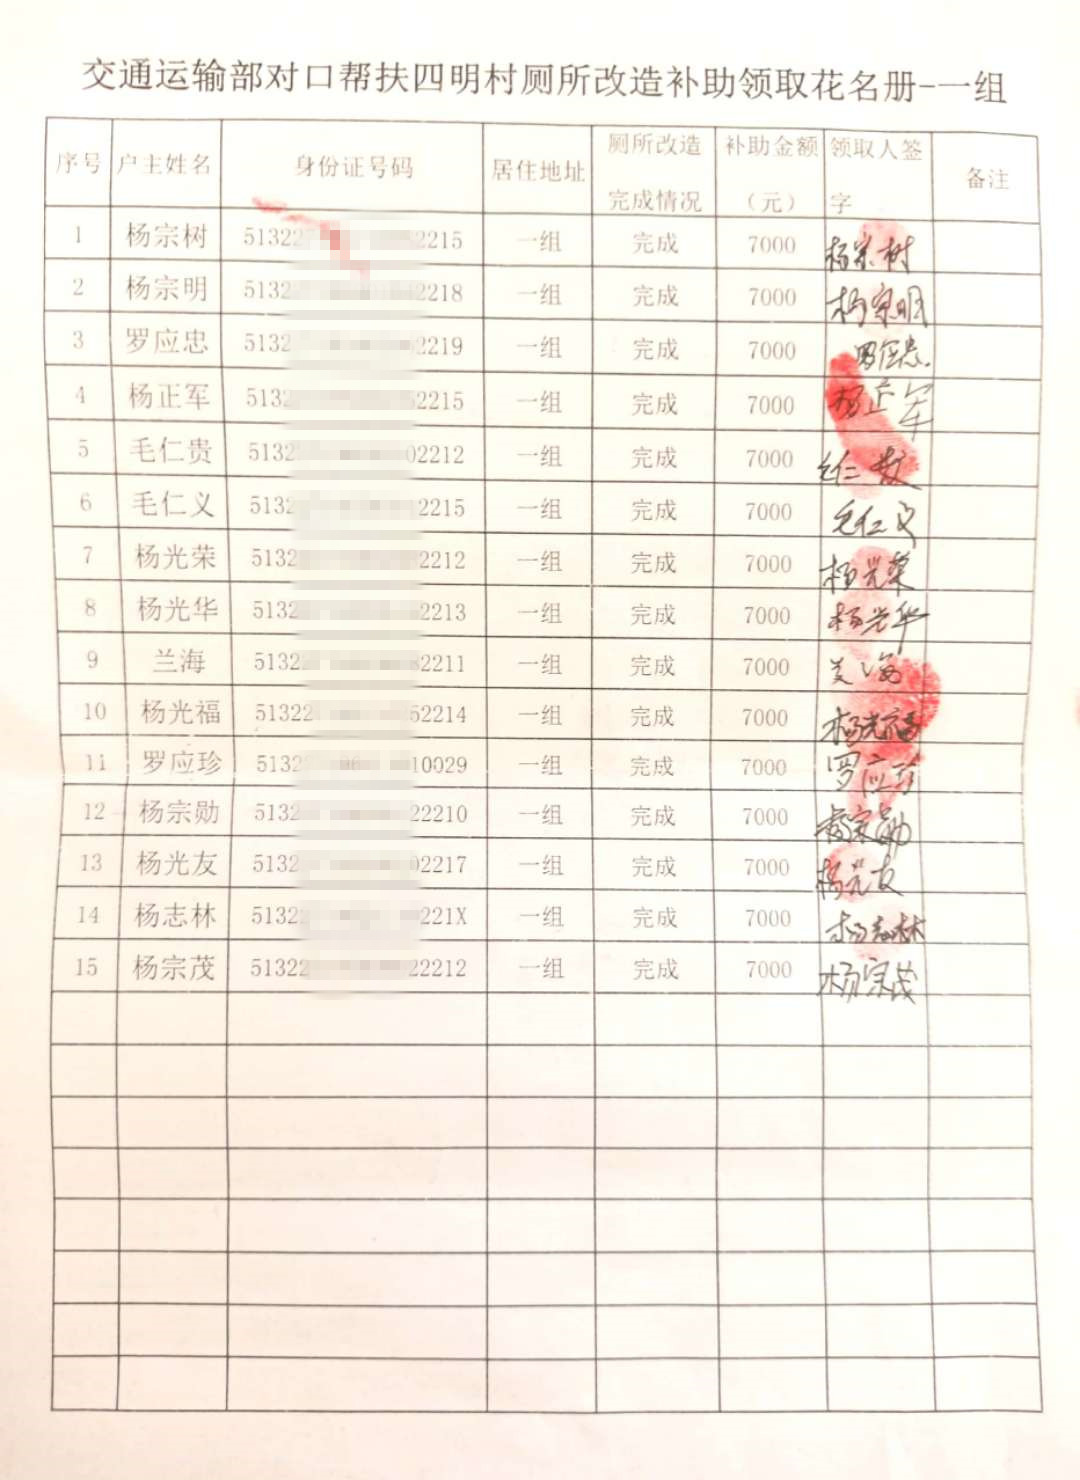 交通运输部对口帮扶四明村厕所改造补助领取花名册-一组
序号 户主姓名 身份证号码 居住地址 厕所改造完成情况 补助金额（元） 领取人签字 备注
1 杨宗树 51322 2215 一组 完成 7000 杨宗树
2 杨宗明 5132 2218 一组 完成 7000 杨宗明
3 罗应忠 5132 2219 一组 完成 7000 罗应忠
4 杨正军 5132 2215 一组 完成 7000 杨正军
5 毛仁贵 5132 02212 一组 完成 7000 毛仁贵
6 毛仁义 5132 2215 一组 完成 7000 毛仁义
7 杨光荣 5132 2212 一组 完成 7000 杨光荣
8 杨光华 5132 2213 一组 完成 7000 杨光华
9 兰海 5132 2211 一组 完成 7000 兰海
10 杨光福 51322 52214 一组 完成 7000 杨光福
11 罗应珍 5132 10029 一组 完成 7000 罗应珍
12 杨宗勋 5132 22210 一组 完成 7000 杨宗勋
13 杨光友 5132 02217 一组 完成 7000 杨光友
14 杨志林 51322 221X 一组 完成 7000 杨志林
15 杨宗茂 51322 22212 一组 完成 7000 杨宗茂